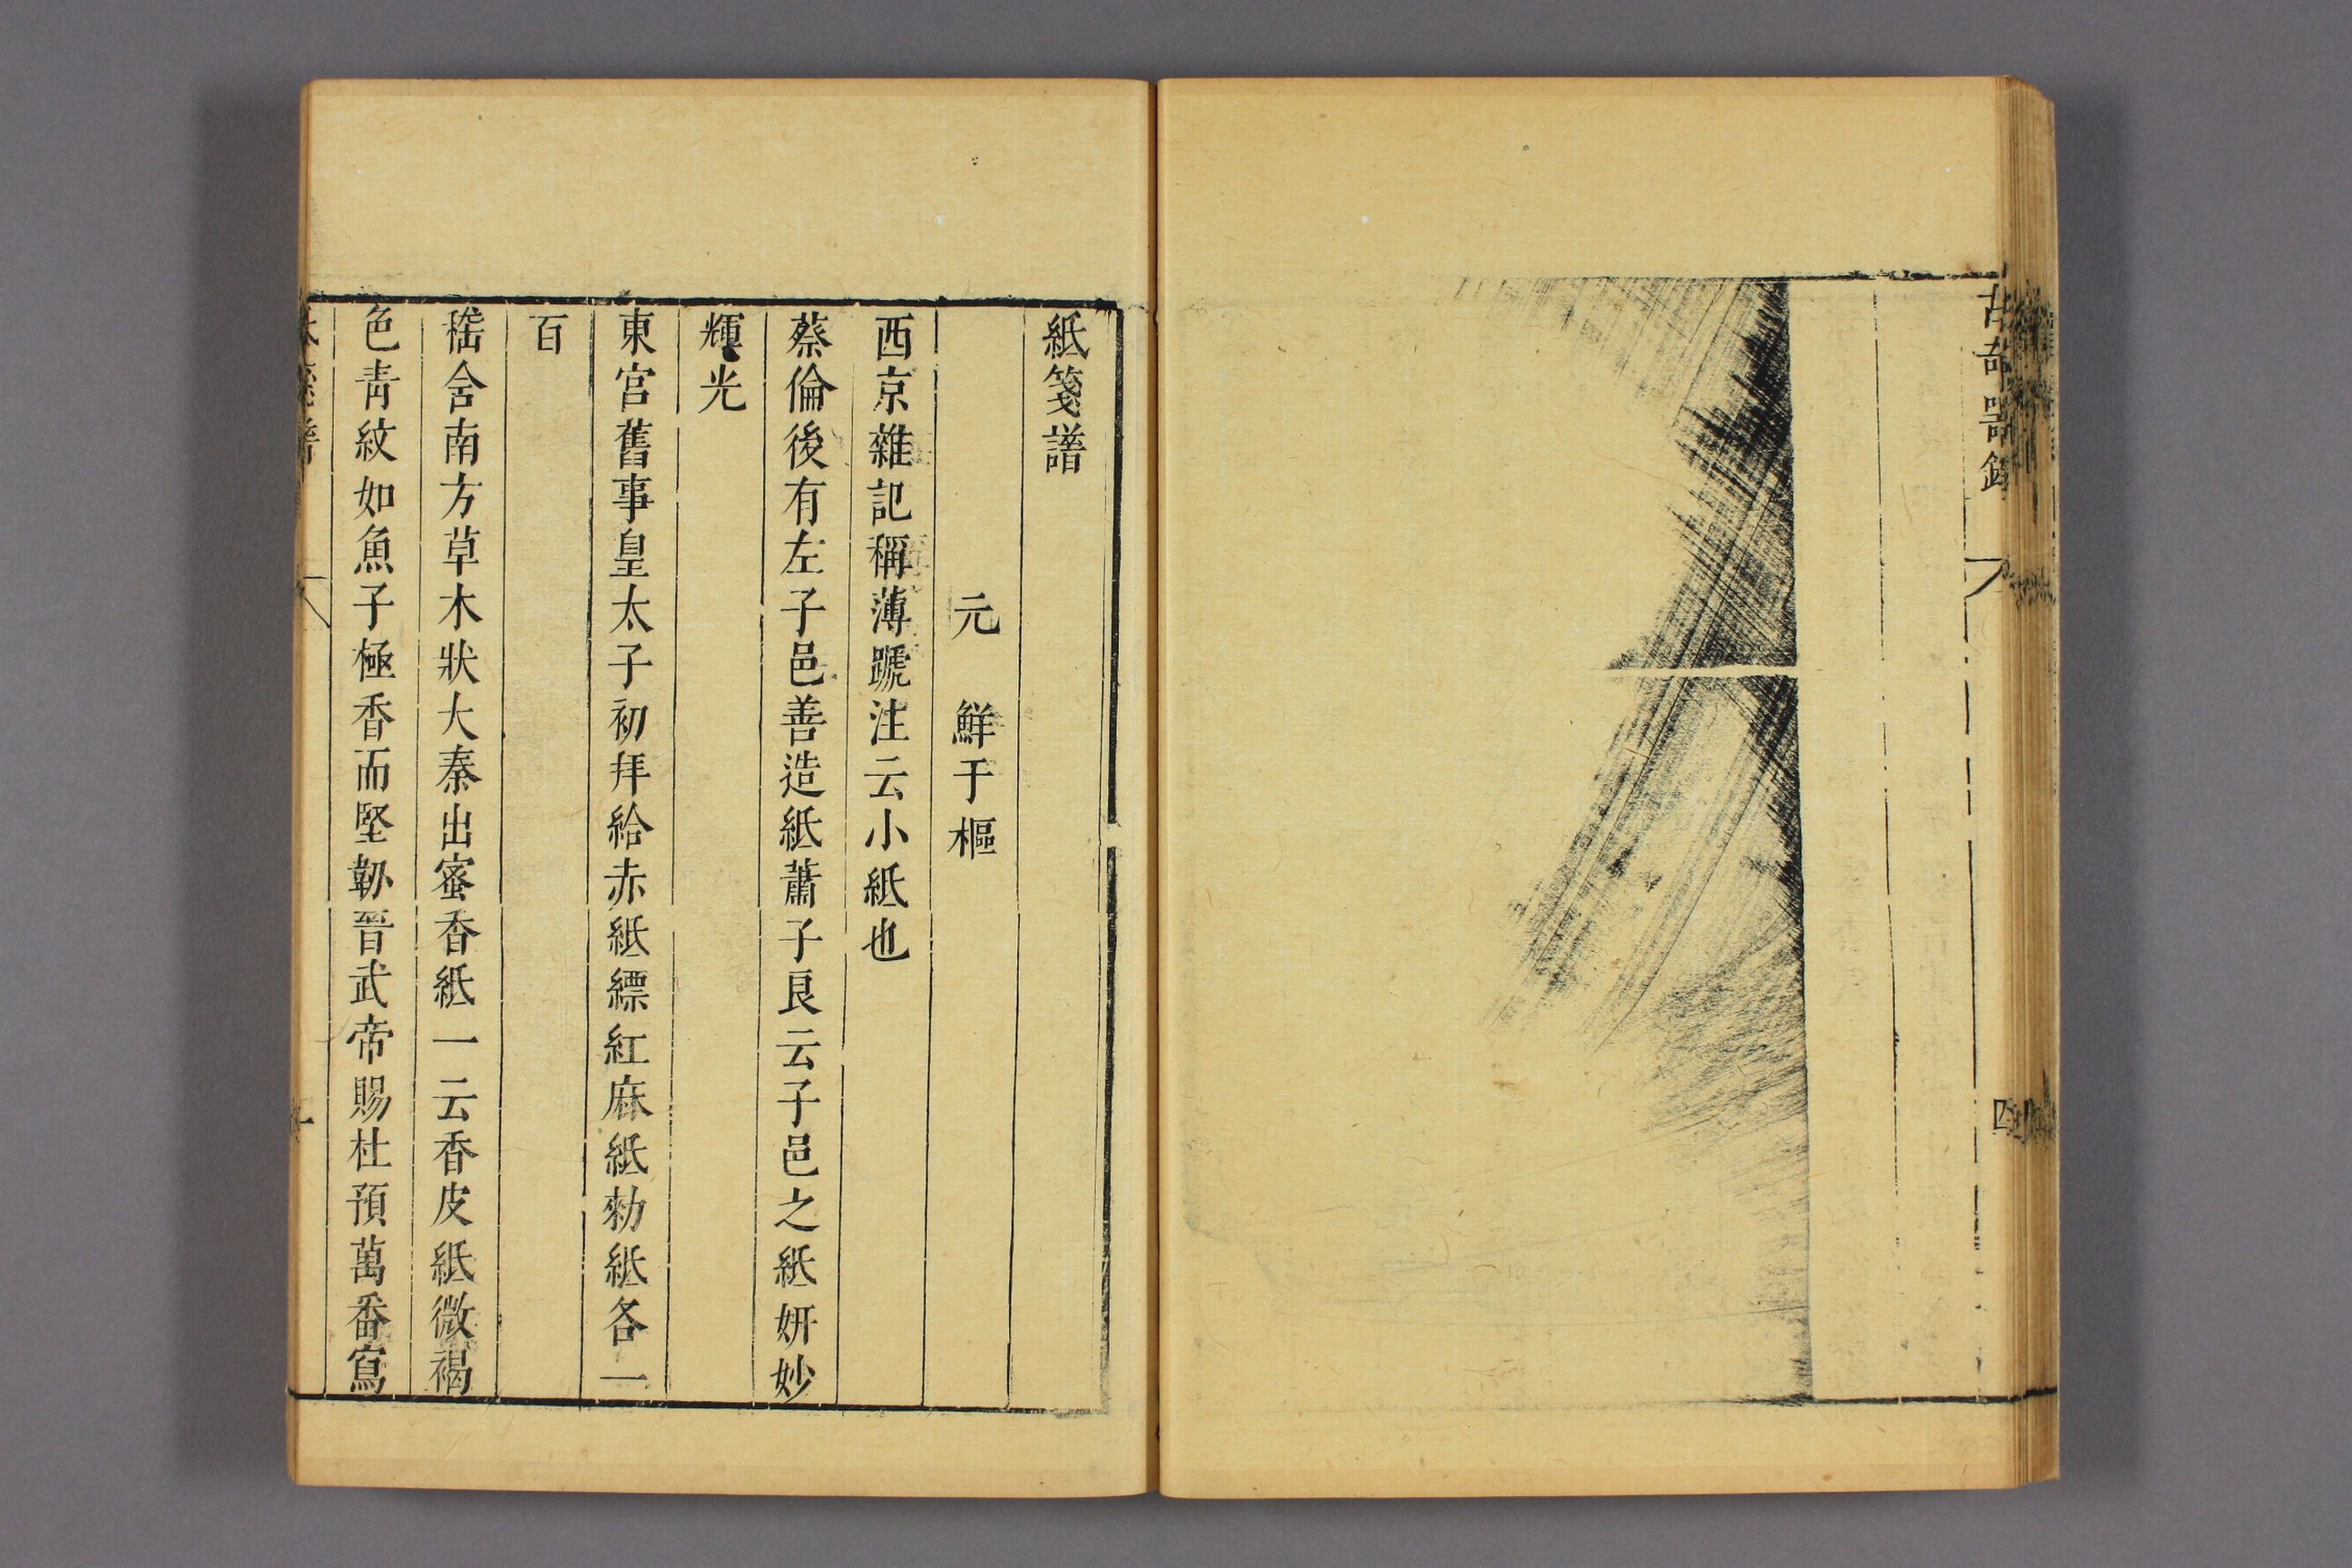 古奇器錄
四
紙箋譜
元 鮮于樞
西京雜記稱薄蹏注云小紙也
蔡倫後有左子邑善造紙蕭子良云子邑之紙妍妙
輝光
東宮舊事皇太子初拜給赤紙縹紅麻紙勑紙各一
百
嵇含南方草木狀大秦出蜜香紙一云香皮紙微褐
色青紋如魚子極香而堅韌晉武帝賜杜預萬番寫